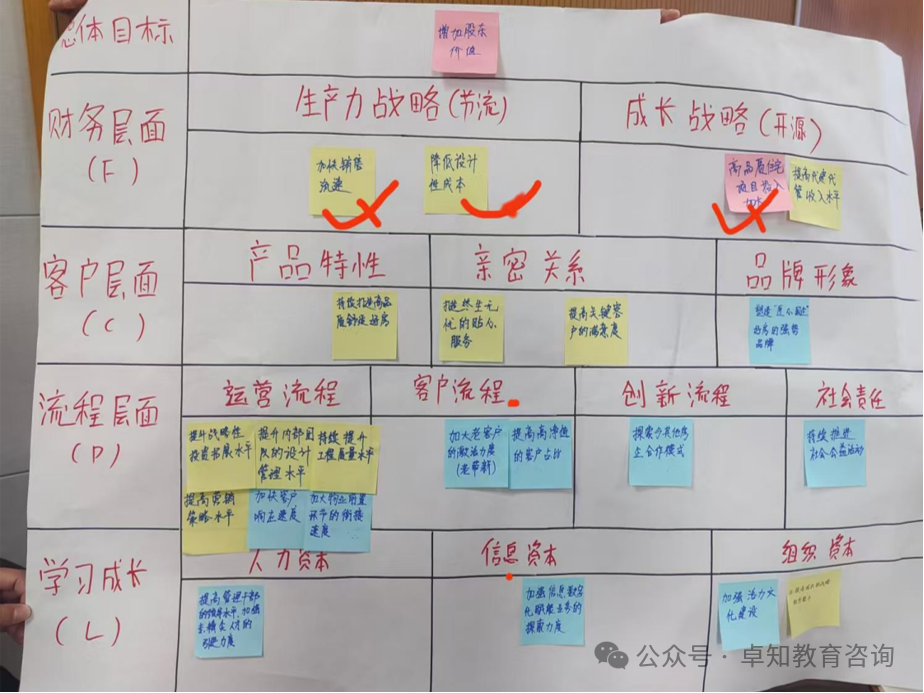 总体目标
增加股东
价值
财务层面
(F)
生产力战略(节流)
成长战略(开源)
加快销售
流速
降低设计
性成本
高品质住宅
项目收入
提高代建代
管收入水平
客户层面
(C)
产品特性
亲密关系
品牌形象
持续打造高品
质舒适好房
无
优的贴心
服务
提高关键客
户的满意度
好房的强势
品牌
流程层面
(P)
运营流程
客户流程
创新流程
社会责任
提升战略性
投资拓展水平
提升内部团
队的设计
管理水平
持续提升
工程质量水平
提高营销
策略水平
加快客户
响应速度
加大物业前置
环节的衔接
速度
加大老客户
的激活力度
(老带新)
提高高净值
的客户占比
探索与其他房
企合作模式
持续推进
社会公益活动
学习成长
(L)
人力资本
信息资本
组织资本
提高管理干部
的领导水平、加强
人才的
引进力度
加强信息、数字
化赋能业务的
探索力度
加强活力文
化建设
公众号·卓知教育咨询